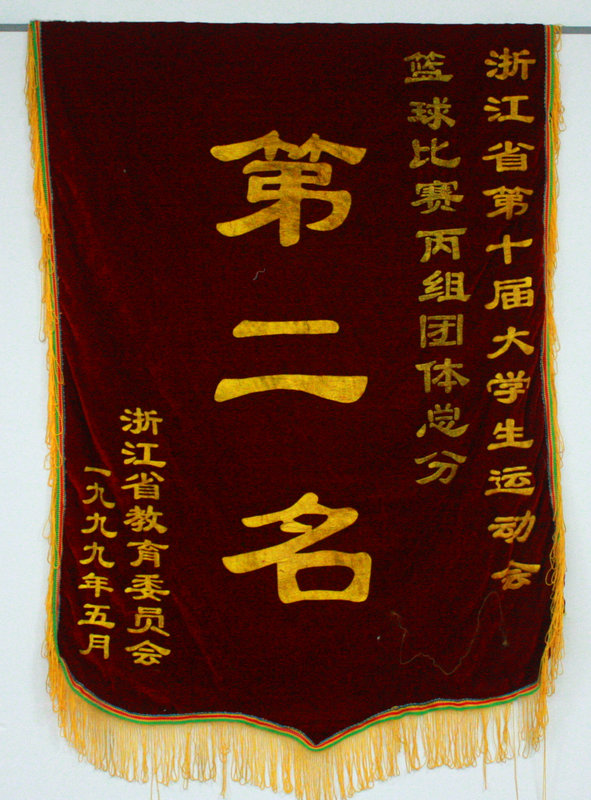 浙江省第十届大学生运动会
篮球比赛丙组团体总分
第二名
浙江省教育委员会
一九九九年五月